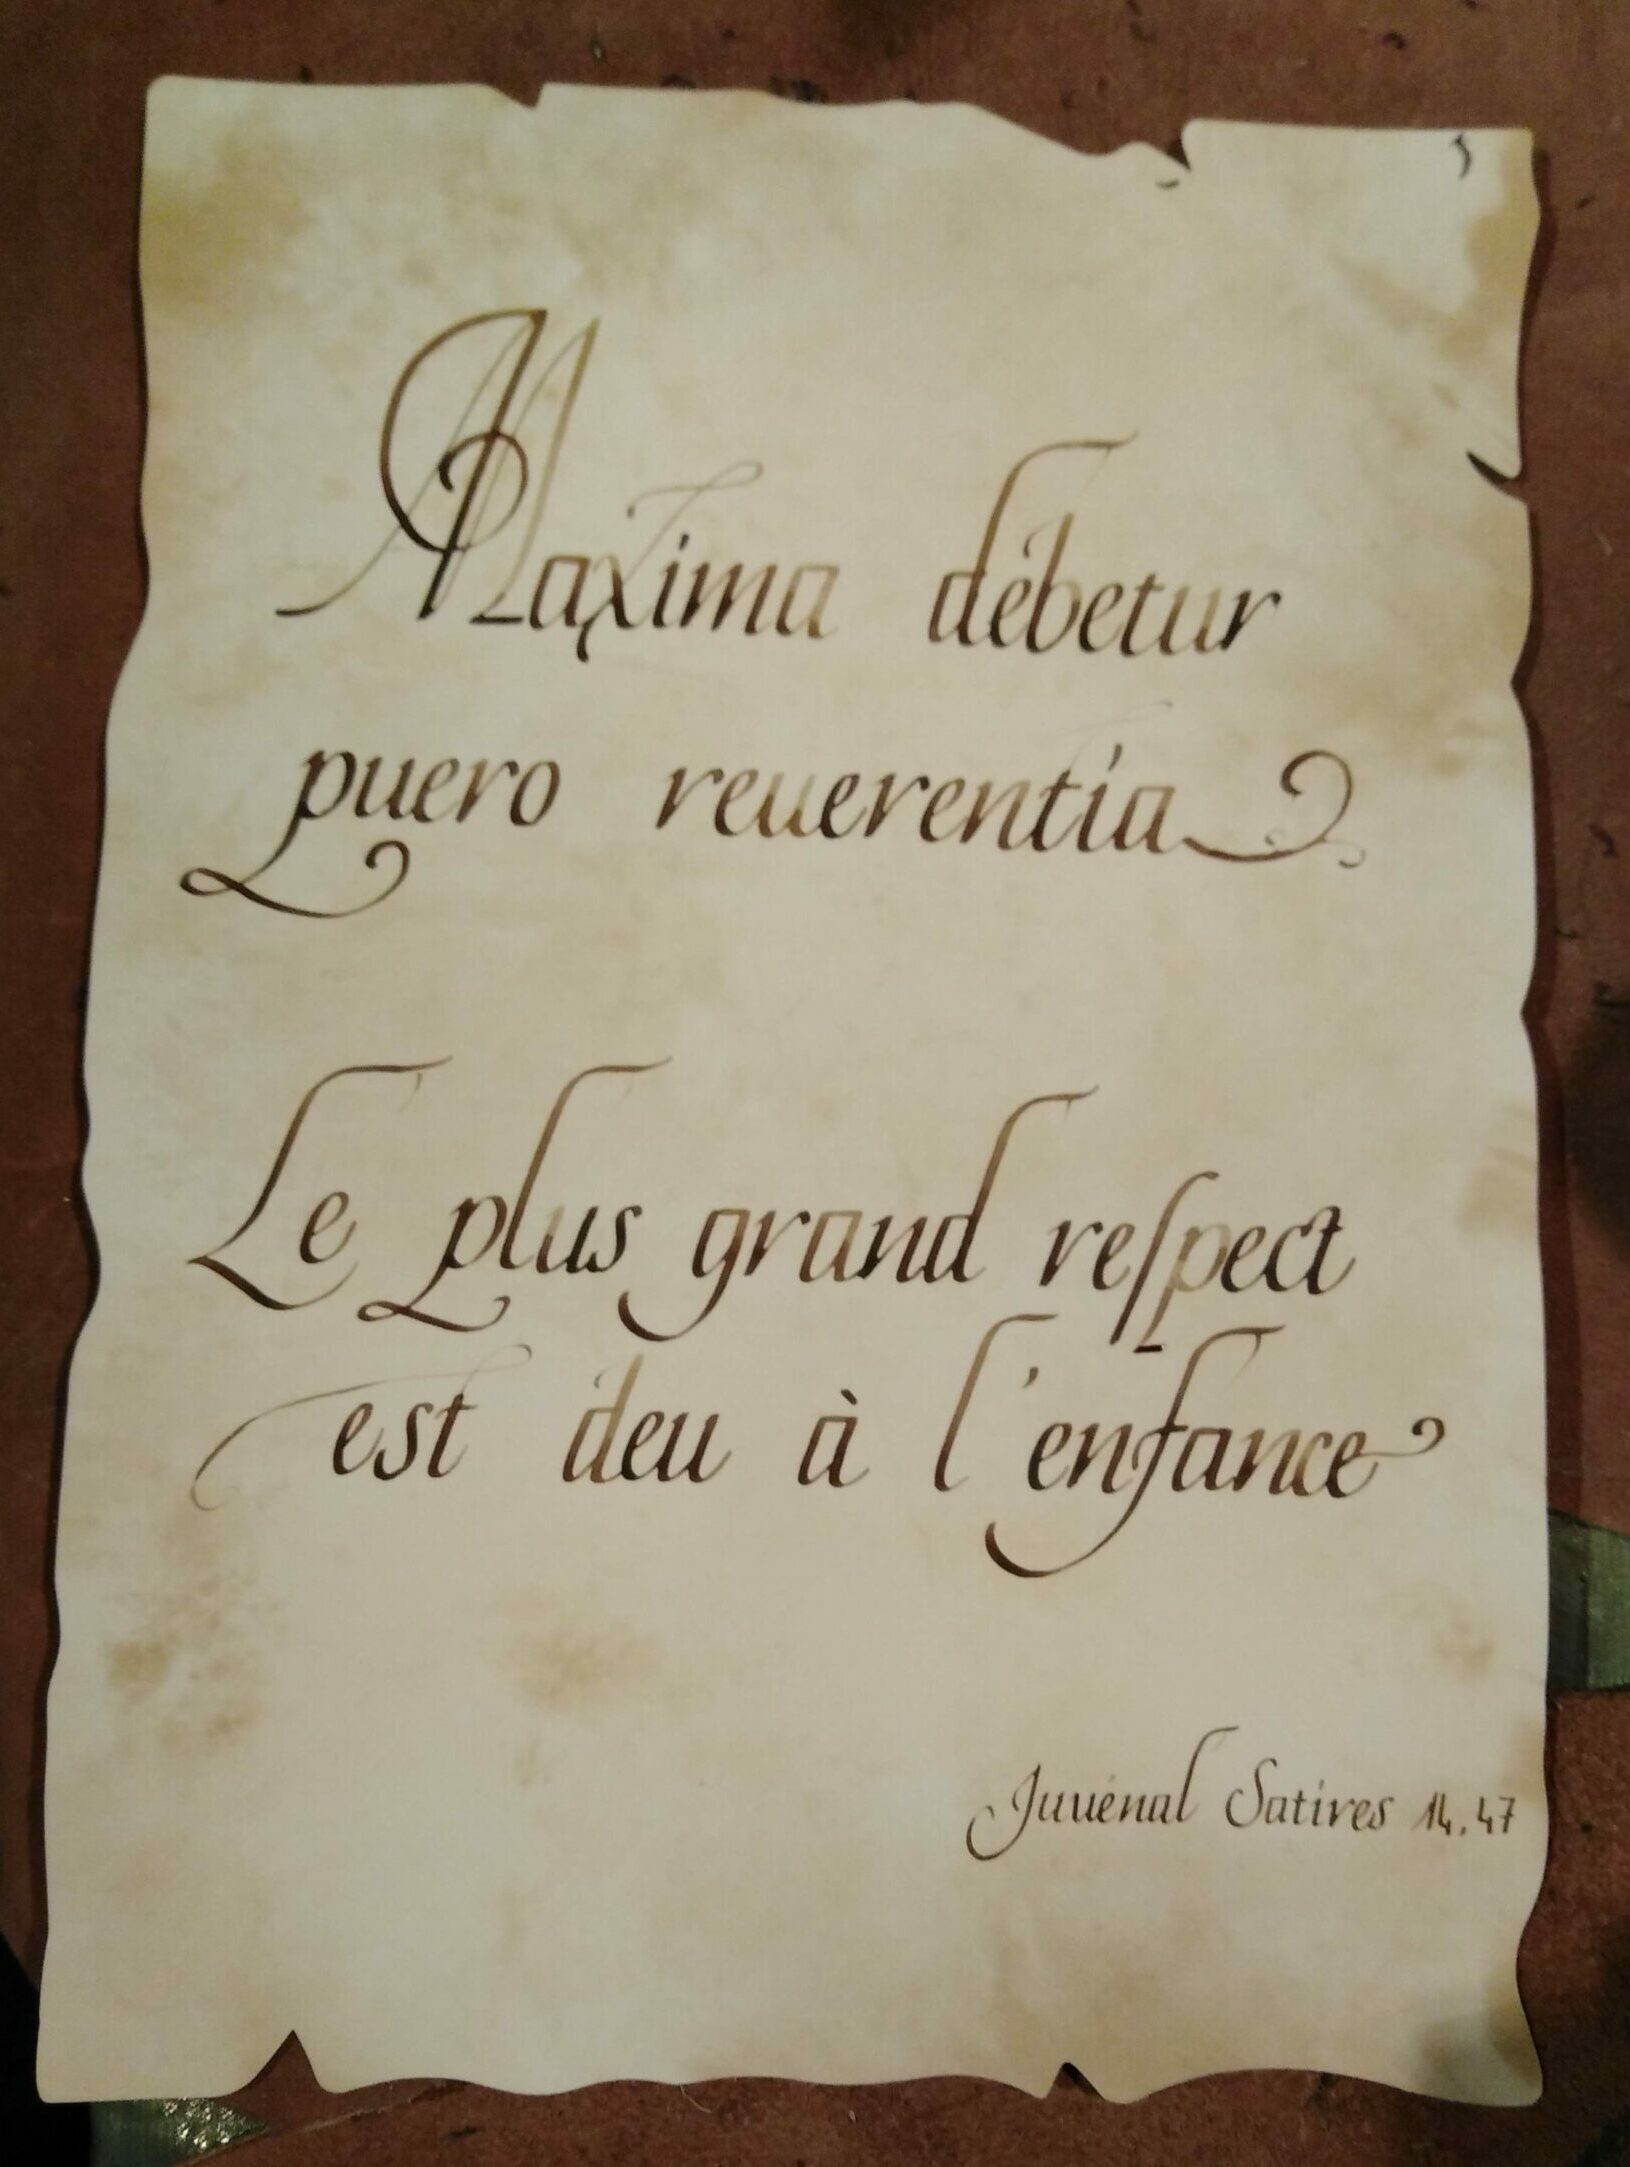 Maxima debetur
puero reuerentia
Le plus grand reſpect
est deu à l'enfance
Juuénal Satires 14.47